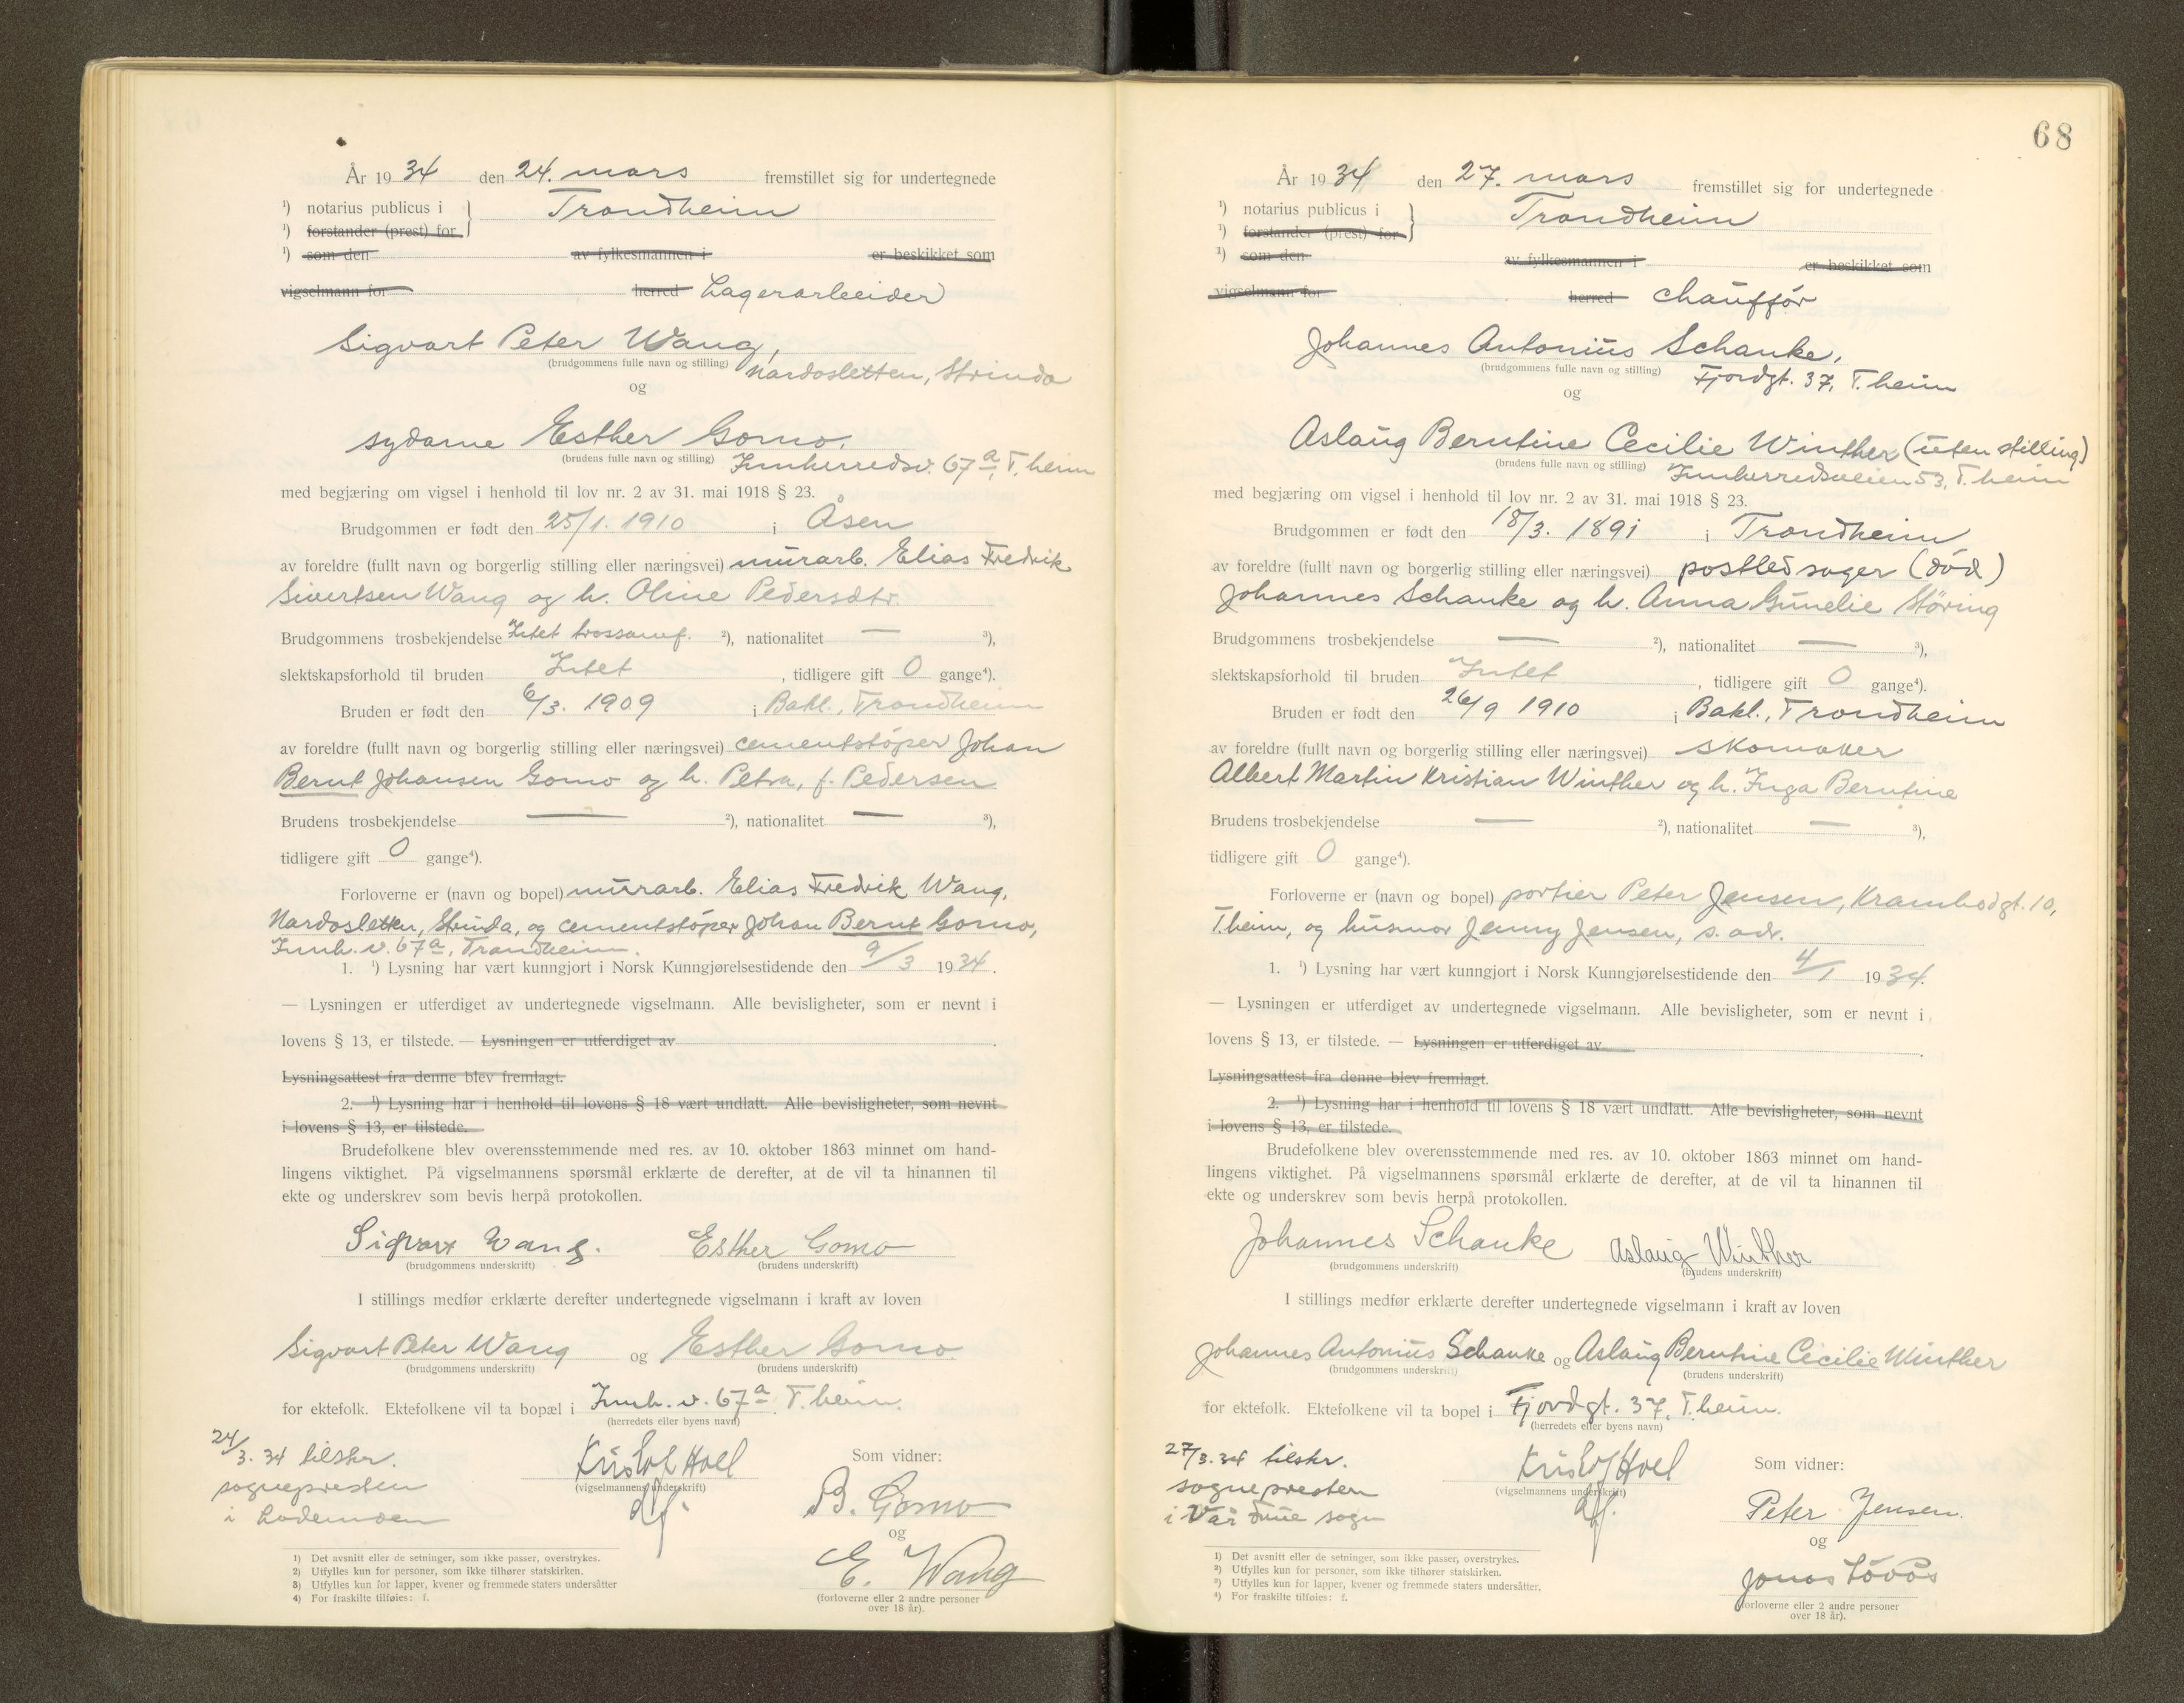 År 1934 den 24. mars fremstillet sig for undertegnede
¹) notarius publicus i } Trondheim
¹) forstander (prest) for
¹) som den av fylkesmannen i er beskikket som
vigselmann for herred Lagerarbeider
Sigvart Peter Wang,
(brudgommens fulle navn og stilling) Nardosletten, Strinda
og
sydame Esther Gomo.
(brudens fulle navn og stilling) Innherredsv. 67ª, T.heim
med begjæring om vigsel i henhold til lov nr. 2 av 31. mai 1918 § 23.
Brudgommen er født den 25/1. 1910 i Åsen
av foreldre (fullt navn og borgerlig stilling eller næringsvei) murarb. Elias Fredrik
Sivertsen Wang og h. Oline Pedersdtr.
Brudgommens trosbekjendelse Intet trossamf. ²), nationalitet — ³),
slektskapsforhold til bruden Intet, tidligere gift 0 gange⁴).
Bruden er født den 6/3. 1909 i Bakl., Trondheim
av foreldre (fullt navn og borgerlig stilling eller næringsvei) cementstöper Johan
Bernt Johansen Gomo og h. Petra, f. Pedersen
Brudens trosbekjendelse — ²), nationalitet — ³),
tidligere gift 0 gange⁴).
Forloverne er (navn og bopel) murarb. Elias Fredrik Wang,
Nardosletten, Strinda, og cementstöper Johan Bernt Gomo,
Innh. v. 67ª, Trondheim.
1. ¹) Lysning har vært kunngjort i Norsk Kunngjørelsestidende den 9/3 1934.
— Lysningen er utferdiget av undertegnede vigselmann. Alle bevisligheter, som er nevnt i
lovens § 13, er tilstede. — Lysningen er utferdiget av .
Lysningsattest fra denne blev fremlagt.
2. ¹) Lysning har i henhold til lovens § 18 vært undlatt. Alle bevisligheter, som nevnt
i lovens § 13, er tilstede.
Brudefolkene blev overensstemmende med res. av 10. oktober 1863 minnet om hand-
lingens viktighet. På vigselmannens spørsmål erklærte de derefter, at de vil ta hinannen til
ekte og underskrev som bevis herpå protokollen.
Sigvart Wang. Esther Gomo
(brudgommens underskrift) (brudens underskrift)
I stillings medfør erklærte derefter undertegnede vigselmann i kraft av loven
Sigvart Peter Wang og Esther Gomo.
(brudgommens underskrift) (brudens underskrift)
for ektefolk. Ektefolkene vil ta bopæl i Innh. v. 67ª. T.heim.
(herredets eller byens navn)
24/3. 34 tilskr.
sognepresten
i Lademoen
Kristof Hoel
(vigselmannens underskrift)
Som vidner:
B. Gomo
og
E. Wang
(forloverne eller 2 andre personer
over 18 år).
1) Det avsnitt eller de setninger, som ikke passer, overstrykes.
2) Utfylles kun for personer, som ikke tilhører statskirken.
3) Utfylles kun for lapper, kvener og fremmede staters undersåtter
4) For fraskilte tilføies: f.
68
År 1934 den 27. mars fremstillet sig for undertegnede
¹) notarius publicus i } Trondheim
¹) forstander (prest) for
¹) som den av fylkesmannen i er beskikket som
vigselmann for herred chauffór
Johannes Antonius Schanke,
(brudgommens fulle navn og stilling) Fjordgt. 37, T.heim
og
Aslaug Berntine Cecilie Winther (uten stilling)
(brudens fulle navn og stilling) Innherredsveien 53, T.heim
med begjæring om vigsel i henhold til lov nr. 2 av 31. mai 1918 § 23.
Brudgommen er født den 18/3. 1891 i Trondheim
av foreldre (fullt navn og borgerlig stilling eller næringsvei) postledsager (död)
Johannes Schanke og h. Anna Gunelie Störing
Brudgommens trosbekjendelse — ²), nationalitet — ³),
slektskapsforhold til bruden Intet, tidligere gift 0 gange⁴).
Bruden er født den 26/9 1910 i Bakl., Trondheim
av foreldre (fullt navn og borgerlig stilling eller næringsvei) skomaker
Albert Martin Kristian Winther og h. Inga Berntine
Brudens trosbekjendelse — ²), nationalitet — ³),
tidligere gift 0 gange⁴).
Forloverne er (navn og bopel) portier Peter Jensen, Krambodgt. 10,
T.heim, og husmor Jenny Jensen, s. adr.
1. ¹) Lysning har vært kunngjort i Norsk Kunngjørelsestidende den 4/1 1934.
— Lysningen er utferdiget av undertegnede vigselmann. Alle bevisligheter, som er nevnt i
lovens § 13, er tilstede. — Lysningen er utferdiget av .
Lysningsattest fra denne blev fremlagt.
2. ¹) Lysning har i henhold til lovens § 18 vært undlatt. Alle bevisligheter, som nevnt
i lovens § 13, er tilstede.
Brudefolkene blev overensstemmende med res. av 10. oktober 1863 minnet om hand-
lingens viktighet. På vigselmannens spørsmål erklærte de derefter, at de vil ta hinannen til
ekte og underskrev som bevis herpå protokollen.
Johannes Schanke Aslaug Winther
(brudgommens underskrift) (brudens underskrift)
I stillings medfør erklærte derefter undertegnede vigselmann i kraft av loven
Johannes Antonius Schanke og Aslaug Berntine Cicilie Winther
(brudgommens underskrift) (brudens underskrift)
for ektefolk. Ektefolkene vil ta bopel i Fjordgt. 37, T.heim.
(herredets eller byens navn)
27/3. 34 tilskr.
sognepresten
i Vår Frue sogn
Kristof Hoel
(vigselmannens underskrift)
Som vidner:
Peter Jensen.
og
Jonas Lövås
(forloverne eller 2 andre personer
over 18 år).
1) Det avsnitt eller de setninger, som ikke passer, overstrykes.
2) Utfylles kun for personer, som ikke tilhører statskirken.
3) Utfylles kun for lapper, kvener og fremmede staters undersåtter.
4) For fraskilte tilføies: f.